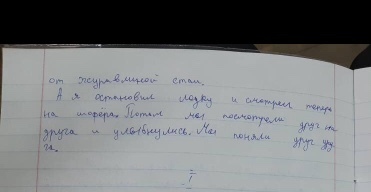 от журавлиной стаи.
А я остановил лодку и смотрел теперь
на шофёра. Потом мы посмотрели друг на
друга и улыбнулись. Мы поняли друг дру
га.